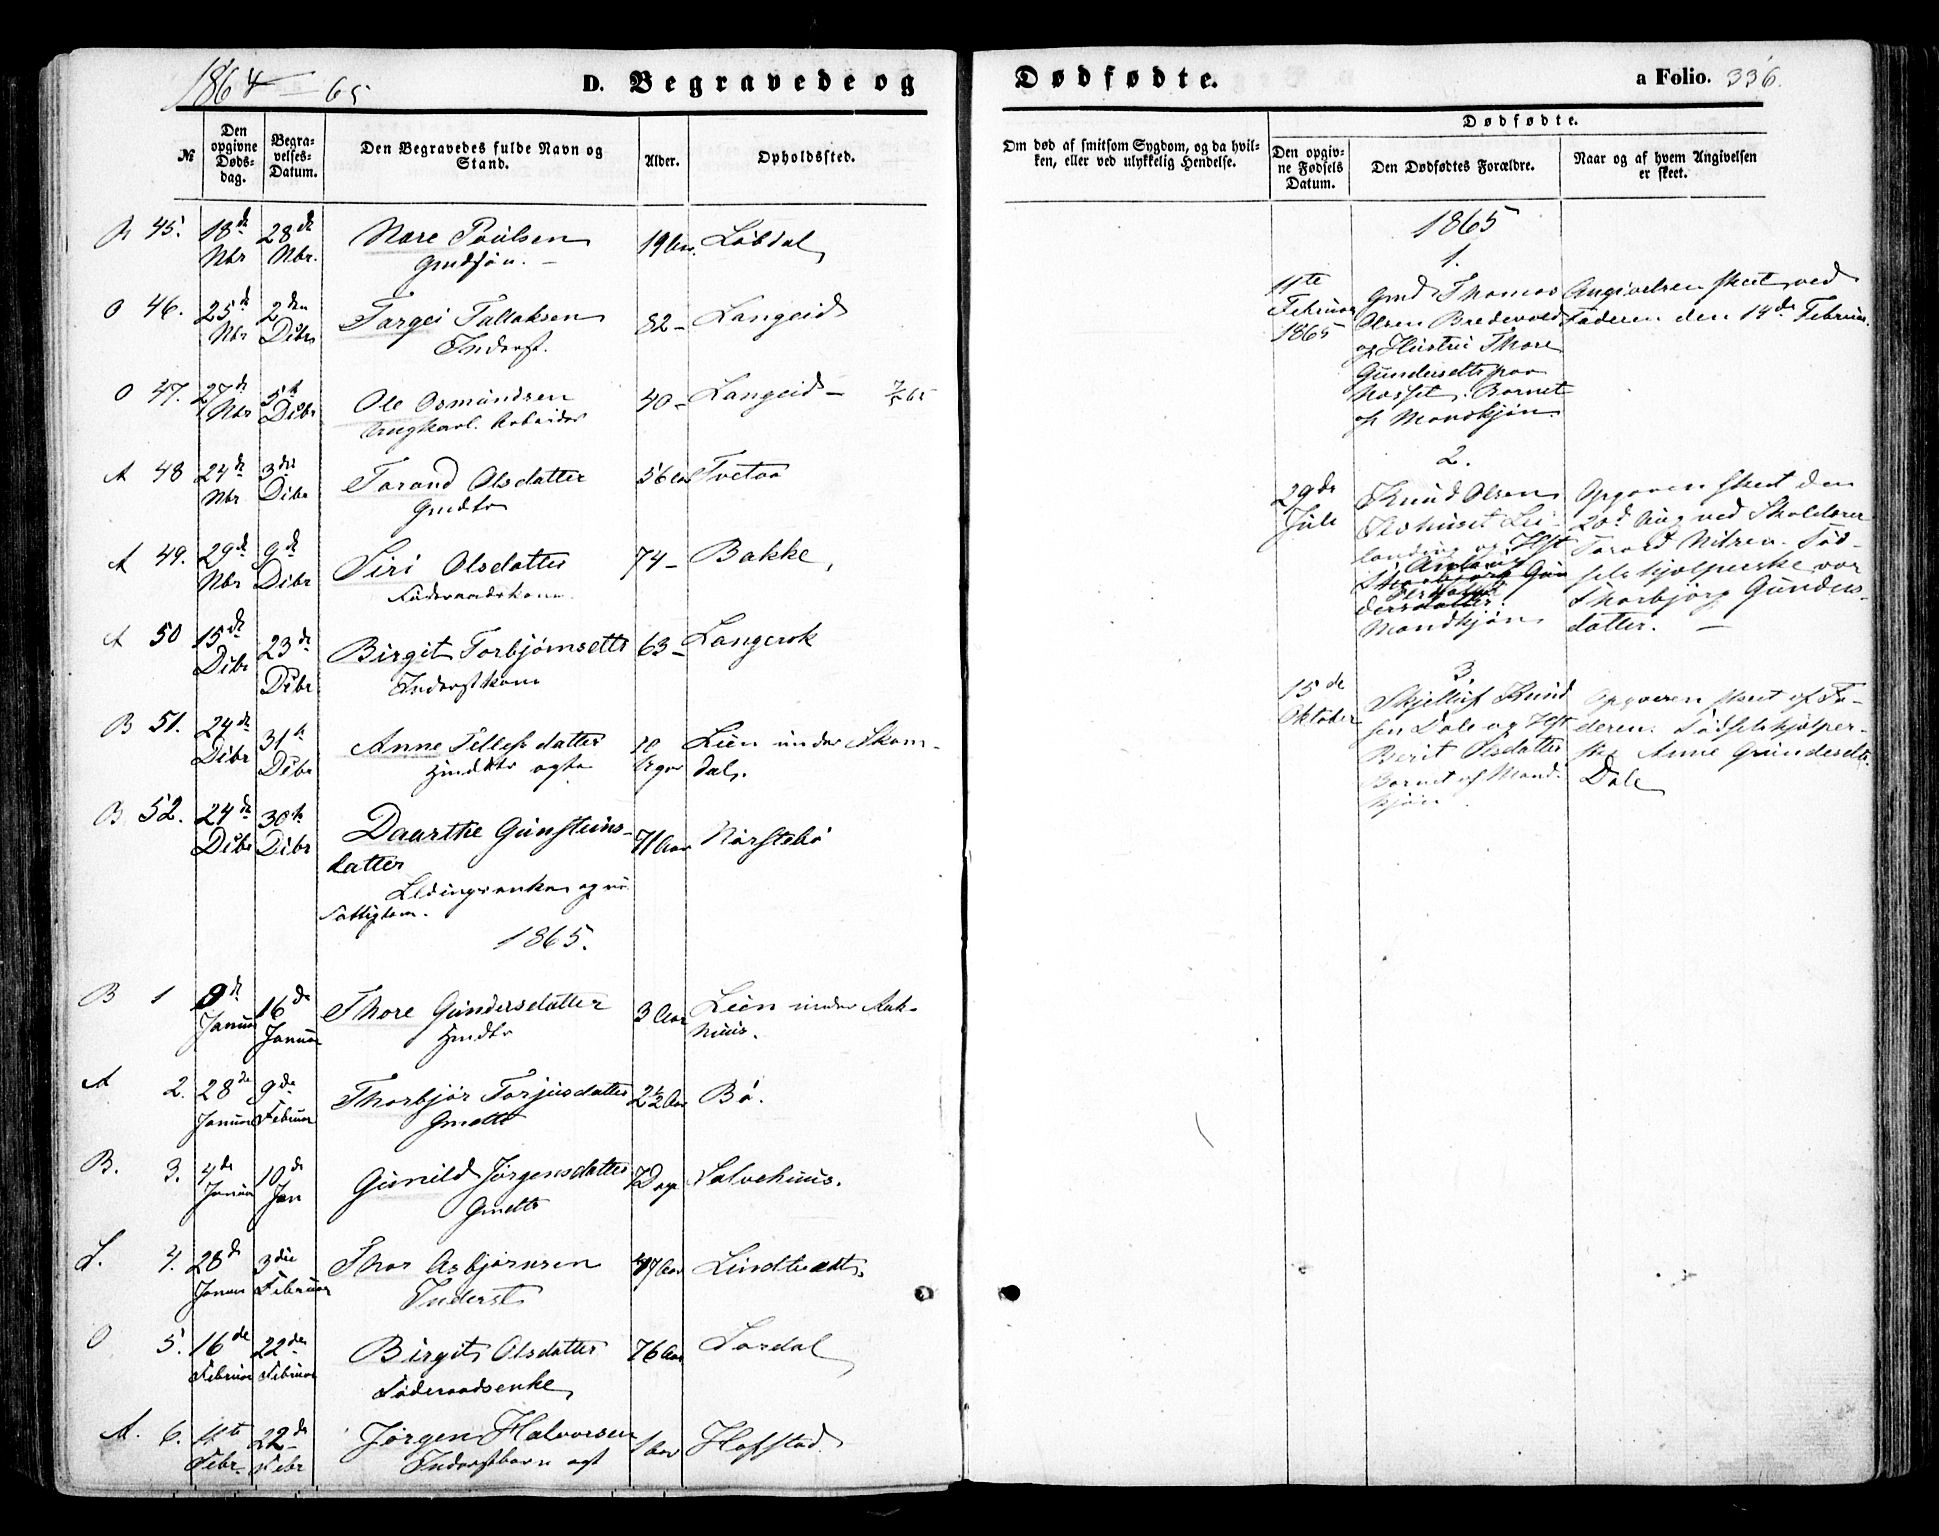 1864 — 65
D. Begravede og
№
Den opgivne Dødsdag.
Begravelses-Datum.
Den Begravedes fulde Navn og Stand.
Alder.
Opholdssted.
B 45. 18de Nbr 28de Nbr. Nore Poulsen 19 Aar. Løbdal
Gmdsøn. —
O 46. 25de Nbr 2den Dcbr Targei Tallaksen 82 — Langeid
Inderst.
O 47. 27de Nbr 5te Dcbr Ole Osmundsen 40 — Langeid —
Ungkarl. Arbeider
A 48 24de Nbr 3die Dcbr Torand Olsdatter 56 Aar Tvetaa
Gmdtr
A 49. 29de Nbr 9de Dcbr Siri Olsdatter 74 — Bakke,
Føderaadskone
A 50 15de Dcbr 23de Dcbr Birgit Torbjørnsdttr 63 — Langerok
Inderstkone
B 51. 24de Dcbr 31te Dcbr Anne Tellefsdatter 10 Uger Lien under Skomdal.
Gmdttr ægte
B 52. 24de Dcbr 30te Dcbr Daarthe Gunsteinsdatter 71 Aar Nørstebø
Fattiglem.
1865.
B 1 9de Januar 16de Januar Thore Gundersdatter 3 Aar Lien under Aakhuus.
Gmdtr
A 2. 28de Januar 9de Februar Thorbjør Torjusdatter 2½ Aar Bø.
Gmdttr
B. 3. 4de Januar 10de Jan Gunild Jørgensdatter 7 Dage Salvehuus.
Gmdttr
L. 4. 28de Januar 3die Februar Thor Asbjørnsen 47 Aar Lindtvedt.
Inderst
O 5. 16de Februar 22de Februar Birgit Olsdatter 76 Aar Lordal
Føderaadsenke
A. 6. 11te Febr. 22de Febr Jørgen Halvorsen 1 Aar Hofstad.
Inderstbarn ægt
Dødfødte.
a Folio. 336.
Om død af smitsom Sygdom, og da hvilken, eller ved ulykkelig Hendelse.
Dødfødte.
Den opgivne Fødsels Datum.
Den Dødfødtes Forældre.
Naar og af hvem Angivelsen er skeet.
1865
1.
11te Februar 1865
Gmd Thomas
Olsen Bredevold
og Hustru Thore
Gundersdtr paa
Nosset. Barnet
af Mandkjøn
Angivelsen skeet ved
Faderen den 14de Februar.
2.
29de Juli
Knud Olsen
Mandkjøn
Opgaven skeet den
20de Aug ved Skolelærer
Torard Nilsen. Fødselshjelperske var
Thorbjørg Gundersdatter. —
3.
15de Oktober
Skjelluf Knudsen Dale og Hst
Berit Olsdatter
Barnet af Mandkjøn
Opgaven skeet af Faderen. Fødselshjelperske Anne Gundersdtr.
Dale